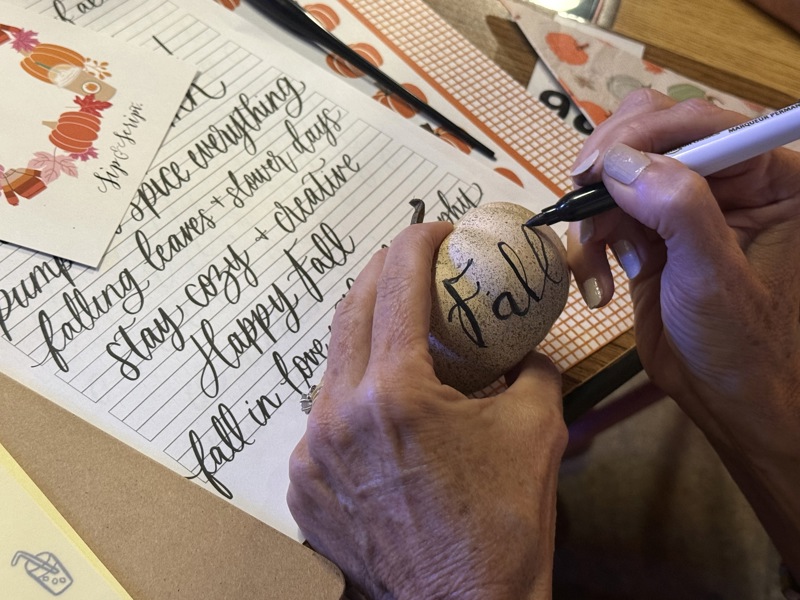 Sip & Script.
spice everything
falling leaves + slower days
stay cozy + creative
Happy Fall
fall in love
Fall
MARQUEUR PERMA